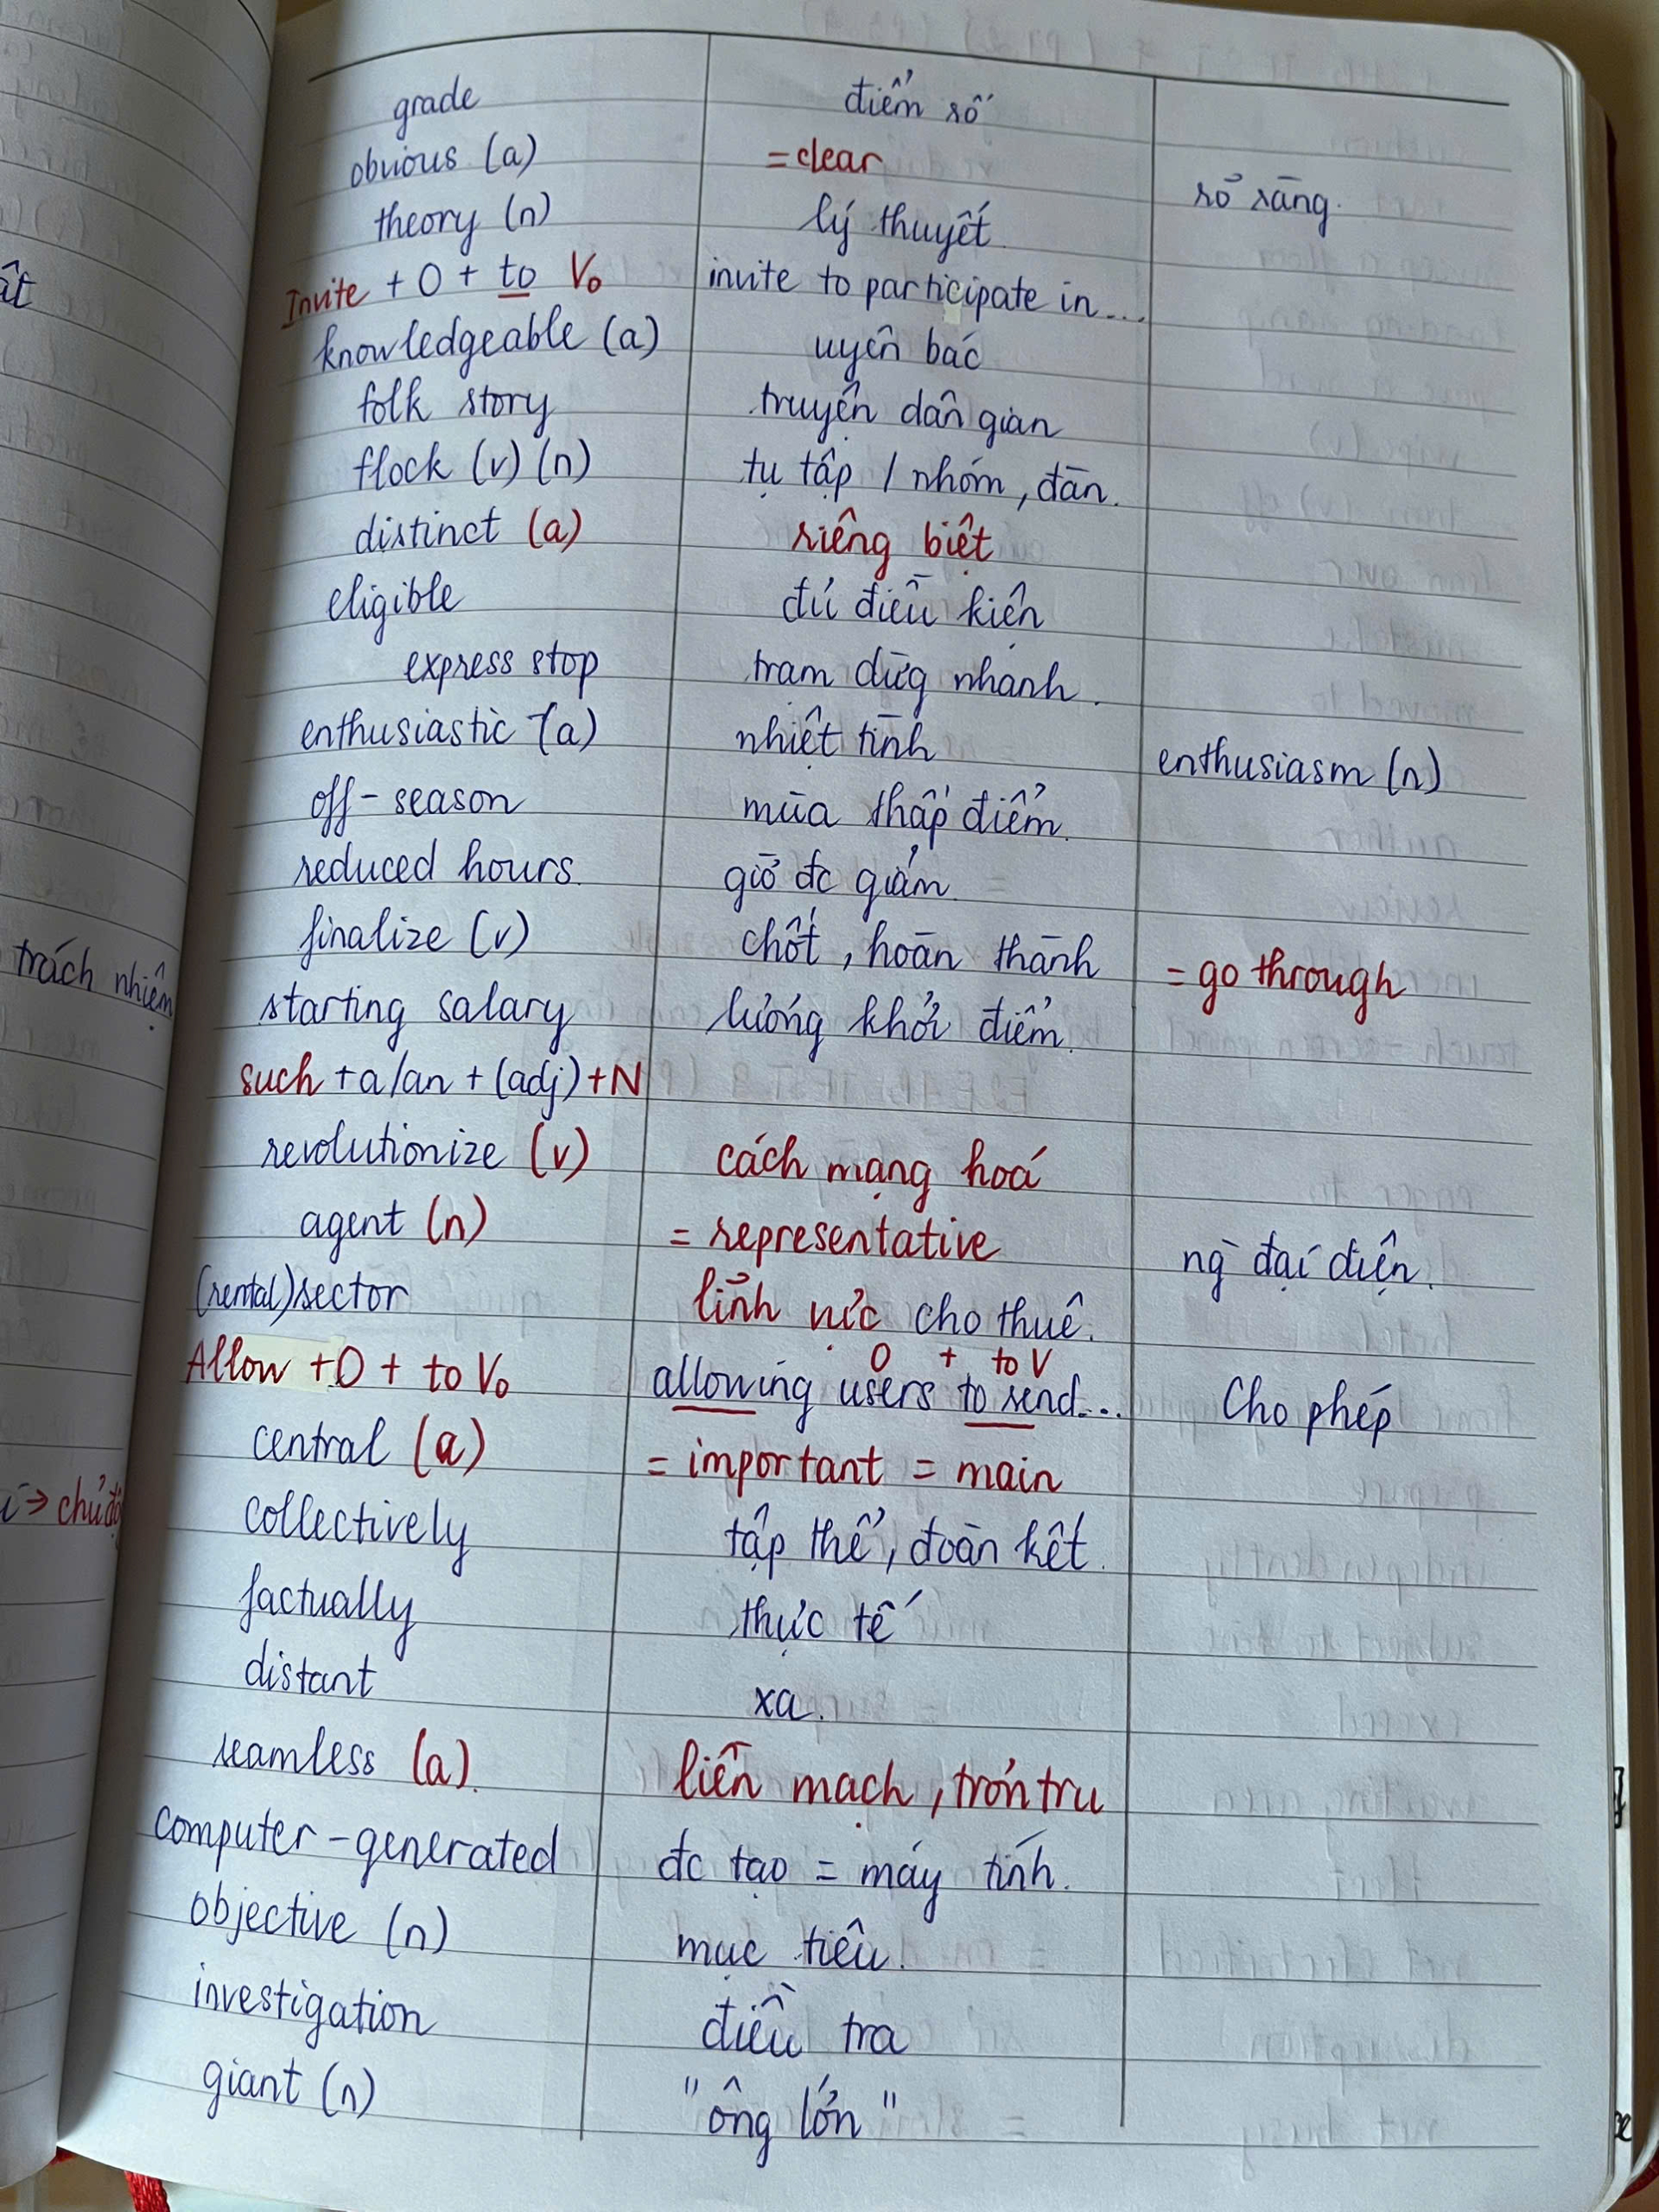 grade điểm số
obvious (a) = clear rõ ràng.
theory (n) lý thuyết
Invite + O + to V₀ invite to participate in...
knowledgeable (a) uyên bác
folk story truyện dân gian
flock (v) (n) tụ tập / nhóm, đàn.
distinct (a) riêng biệt
eligible đủ điều kiện
express stop trạm dừg nhanh.
enthusiastic (a) nhiệt tình enthusiasm (n)
off-season mùa thấp điểm.
reduced hours. giờ đc giảm.
finalize (v) chốt, hoàn thành = go through
starting salary lương khởi điểm.
such + a/an + (adj) + N
revolutionize (v) cách mạng hoá
agent (n) = representative ng` đại diện.
(rental) sector lĩnh vực cho thuê.
O + to V
Allow + O + to V₀ allowing users to send... Cho phép
central (a) = important = main
collectively tập thể, đoàn kết.
factually thực tế
distant xa.
seamless (a). liền mạch, trơn tru
computer-generated đc tạo = máy tính.
objective (n) mục tiêu.
investigation điều tra
giant (n) "ông lớn"
ất
trách nhiệm
→ chủ độ